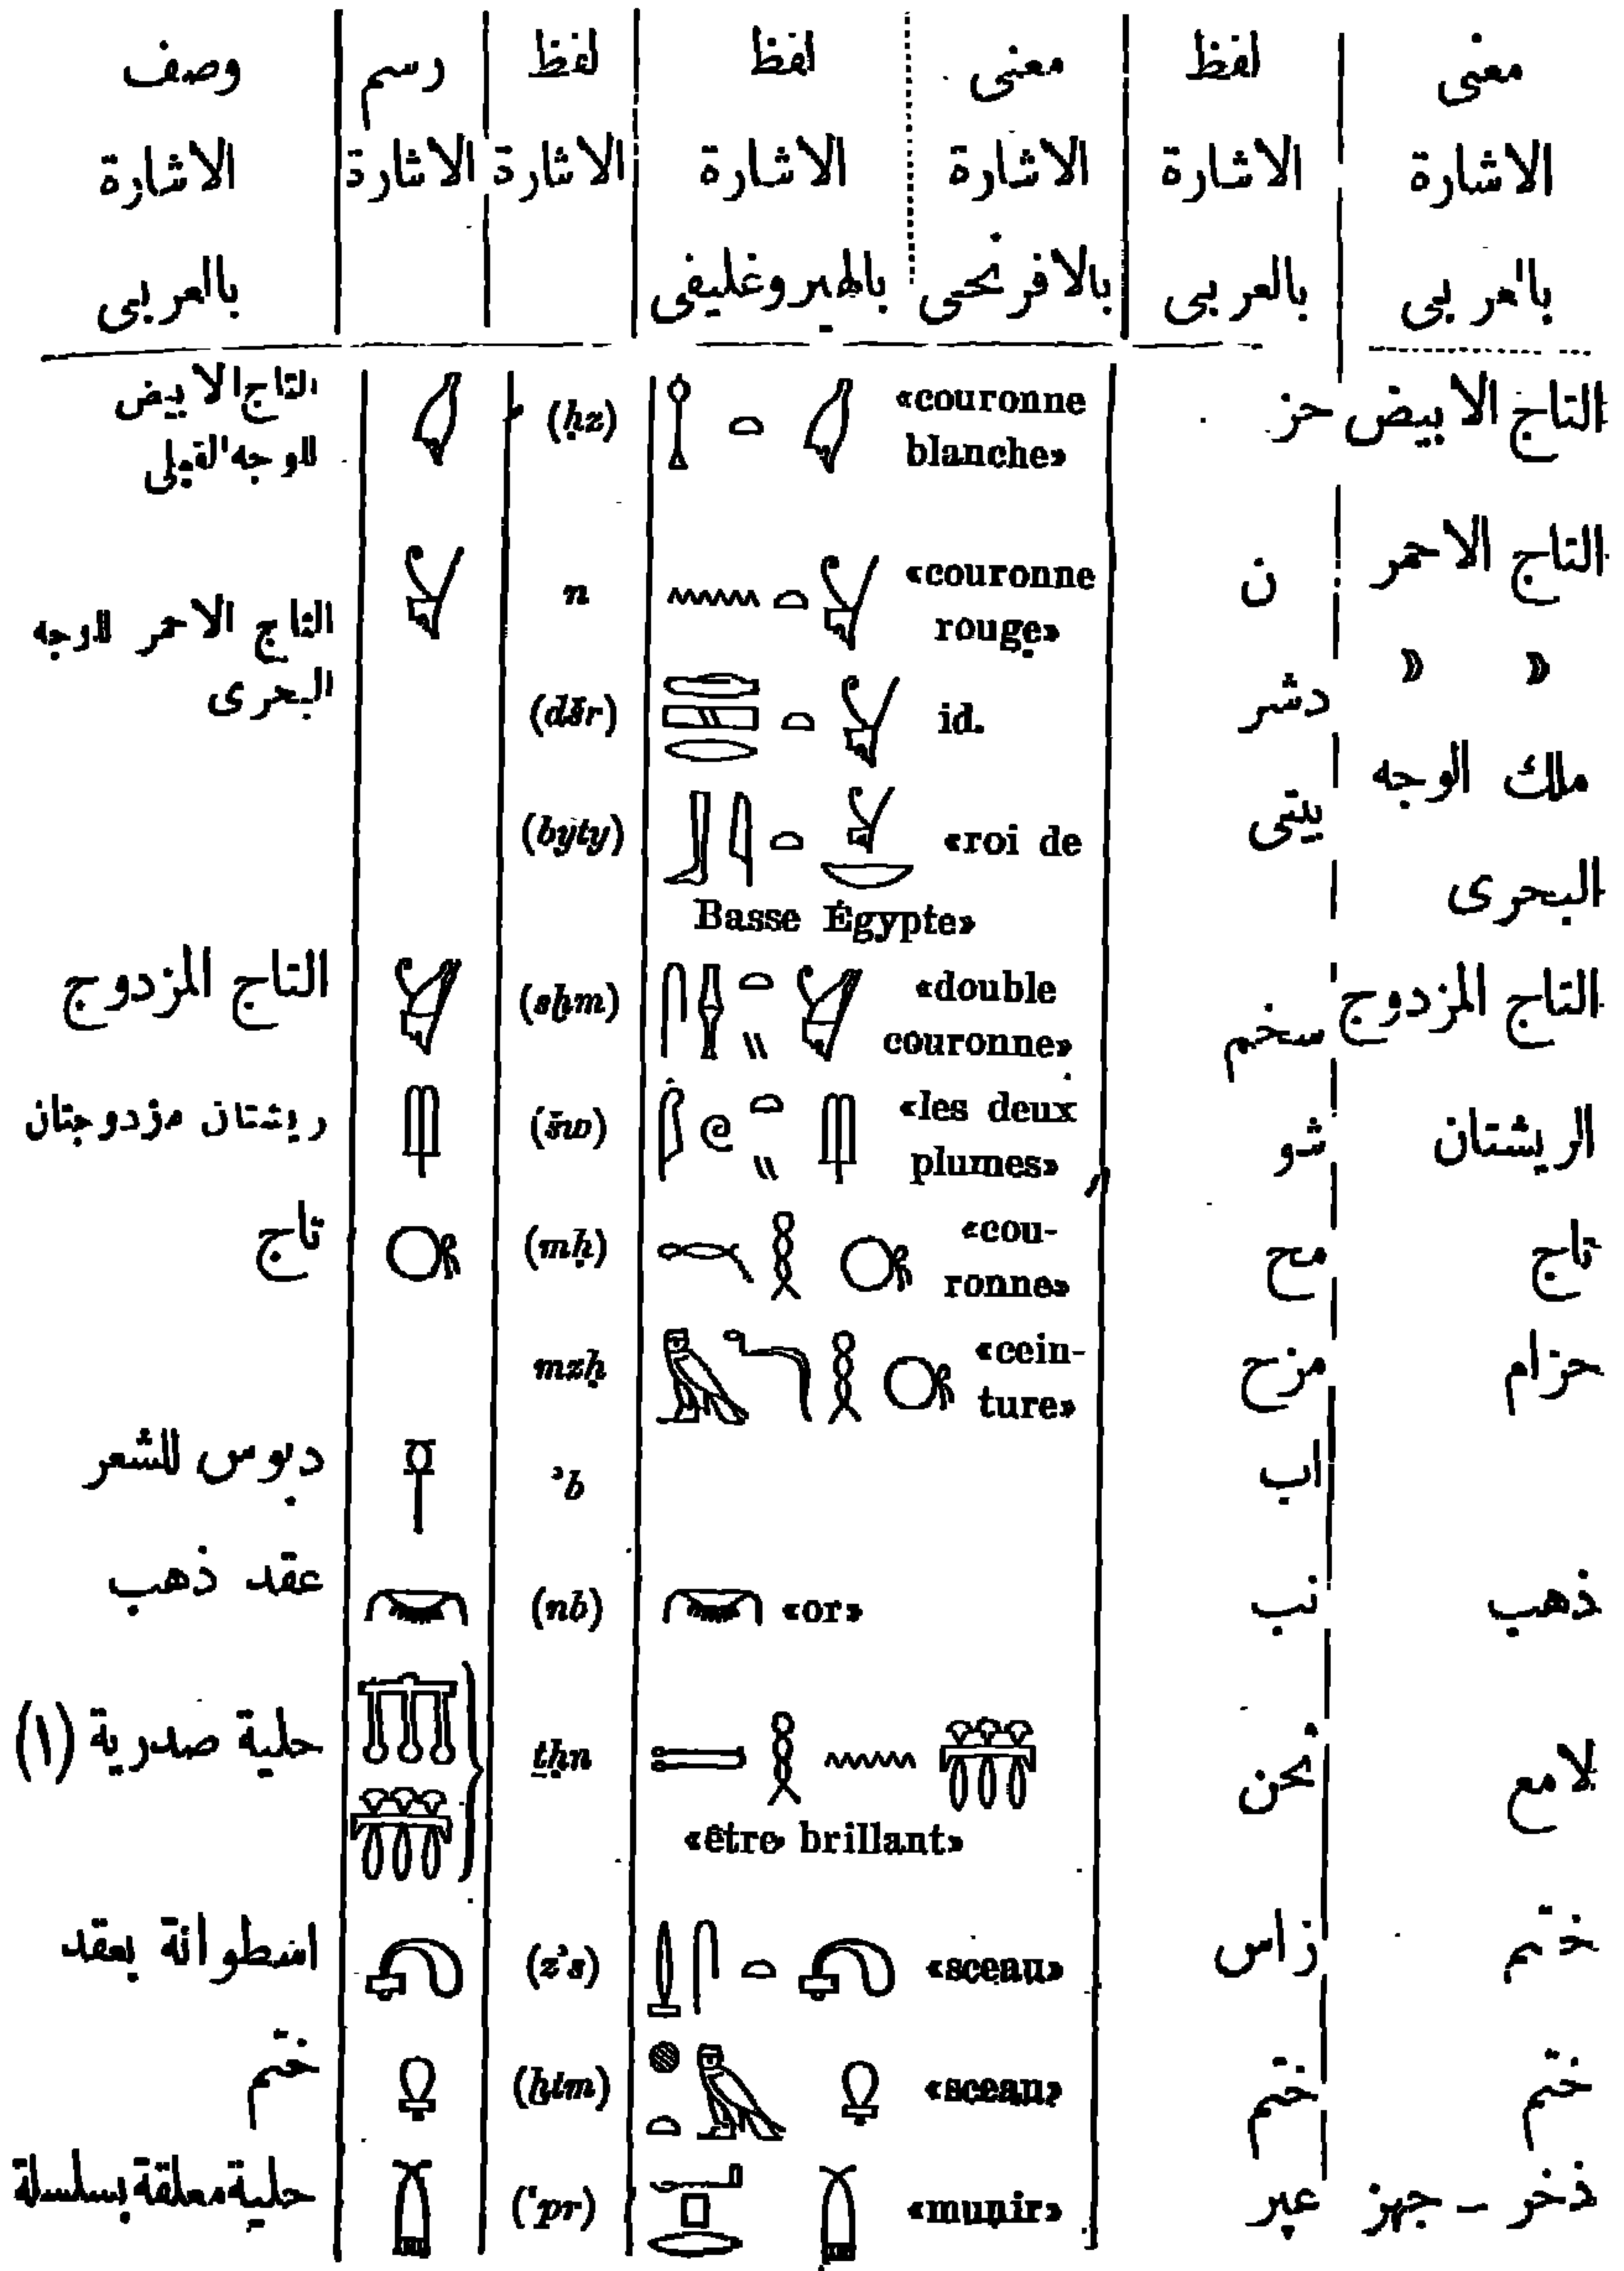 معنى | لفظ | معنى | لفظ | لفظ | رسم | وصف
الاشارة | الاشارة | الاشارة | الاشارة | الاشارة | الاشارة | الاشارة
بالعربى | بالعربى | بالافرنجى | بالهيروغليفى | بالعربى
التاج الابيض | حز | «couronne blanche» | (ḥz) | التاج الابيض للوجه القبلى
التاج الاحمر | ن | «couronne rouge» | n | التاج الاحمر للوجه البحرى
» » | دشر | id. | (dšr)
ملك الوجه البحرى | بيتى | «roi de Basse Égypte» | (byty)
التاج المزدوج | سخم | «double couronne» | (sḫm) | التاج المزدوج
الريشتان | شو | «les deux plumes» | (šw) | ريشتان مزدوجتان
تاج | مح | «cou-ronne» | (mḥ) | تاج
حزام | مزح | «cein-ture» | mzḥ
اب | ʾb | دبوس للشعر
ذهب | نب | «or» | (nb) | عقد ذهب
لامع | ثحن | «être brillant» | ṯḥn | حلية صدرية (١)
ختم | زاس | «sceau» | (zʾs) | اسطوانة بعقد
ختم | ختم | «sceau» | (ḫtm) | ختم
ذخر - جهز | عپر | «munir» | (ʿpr) | حلية معلقة بسلسلة